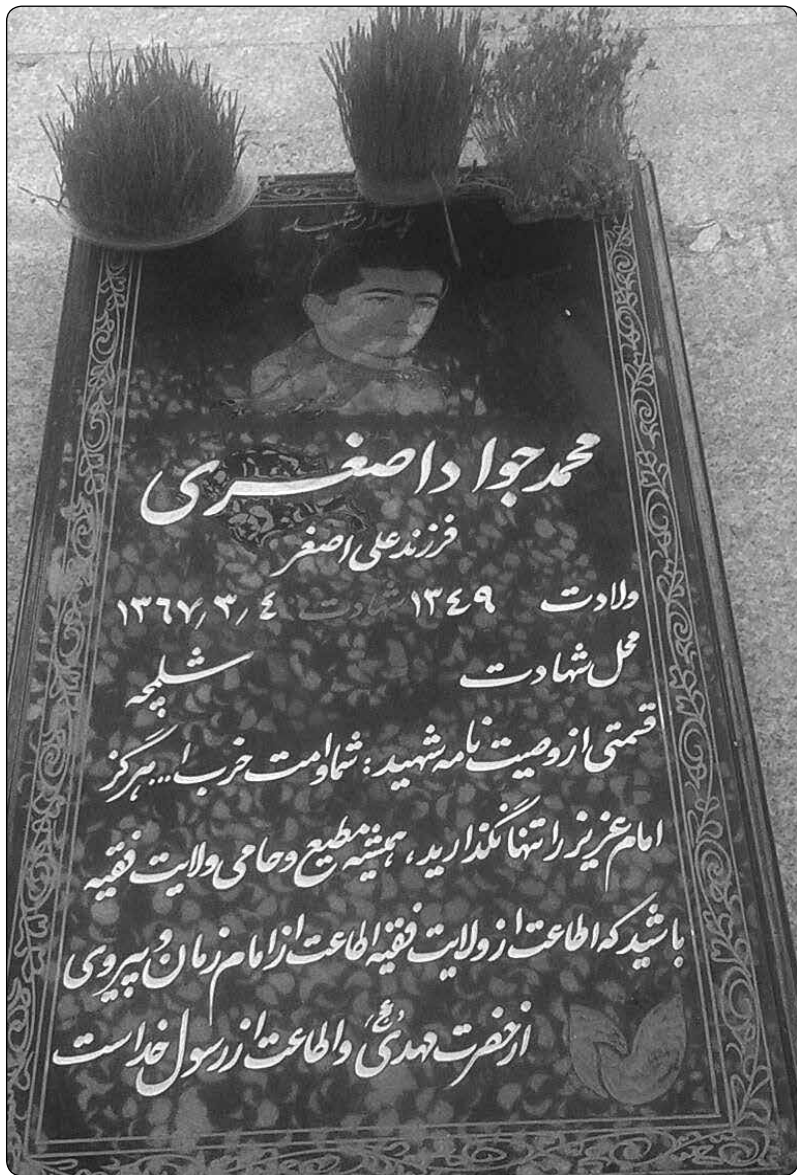 پاسدار شهید
محمد جواد اصغری
فرزند علی اصغر
ولادت ۱۳٤۹ شهادت ٤/۳/۱۳٦۷
محل شهادت شلمچه
قسمتی از وصیت نامه شهید: شما و امت حزب ا... هرگز
امام عزیز را تنها نگذارید، همیشه مطیع و حامی ولایت فقیه
باشید که اطاعت از ولایت فقیه اطاعت از امام زمان و پیروی
از حضرت مهدی (عج) و اطاعت از رسول خداست